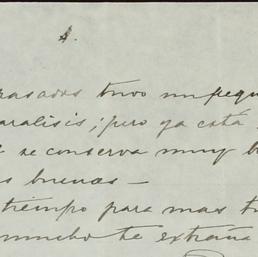 4.
pasados tuvo un peque
paralisis; pero ya está
se conserva muy b
s buenas —
tiempo para mas tu
mucho te extraña